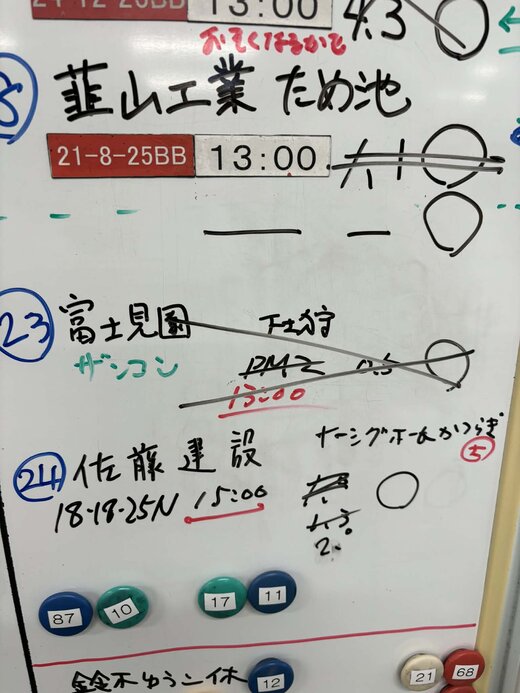 24-12-20BB 13:00 4.3
おそくなるかも
韮山工業 ため池
21-8-25BB 13:00
23 富士見園 下土狩
ザンコン PM2 0.5
13:00
24 佐藤建設 ナーシングホームかつらぎ
5
18-18-25N 15:00
2.0
87 10 17 11
鈴木ゆうこ休 12 21 68